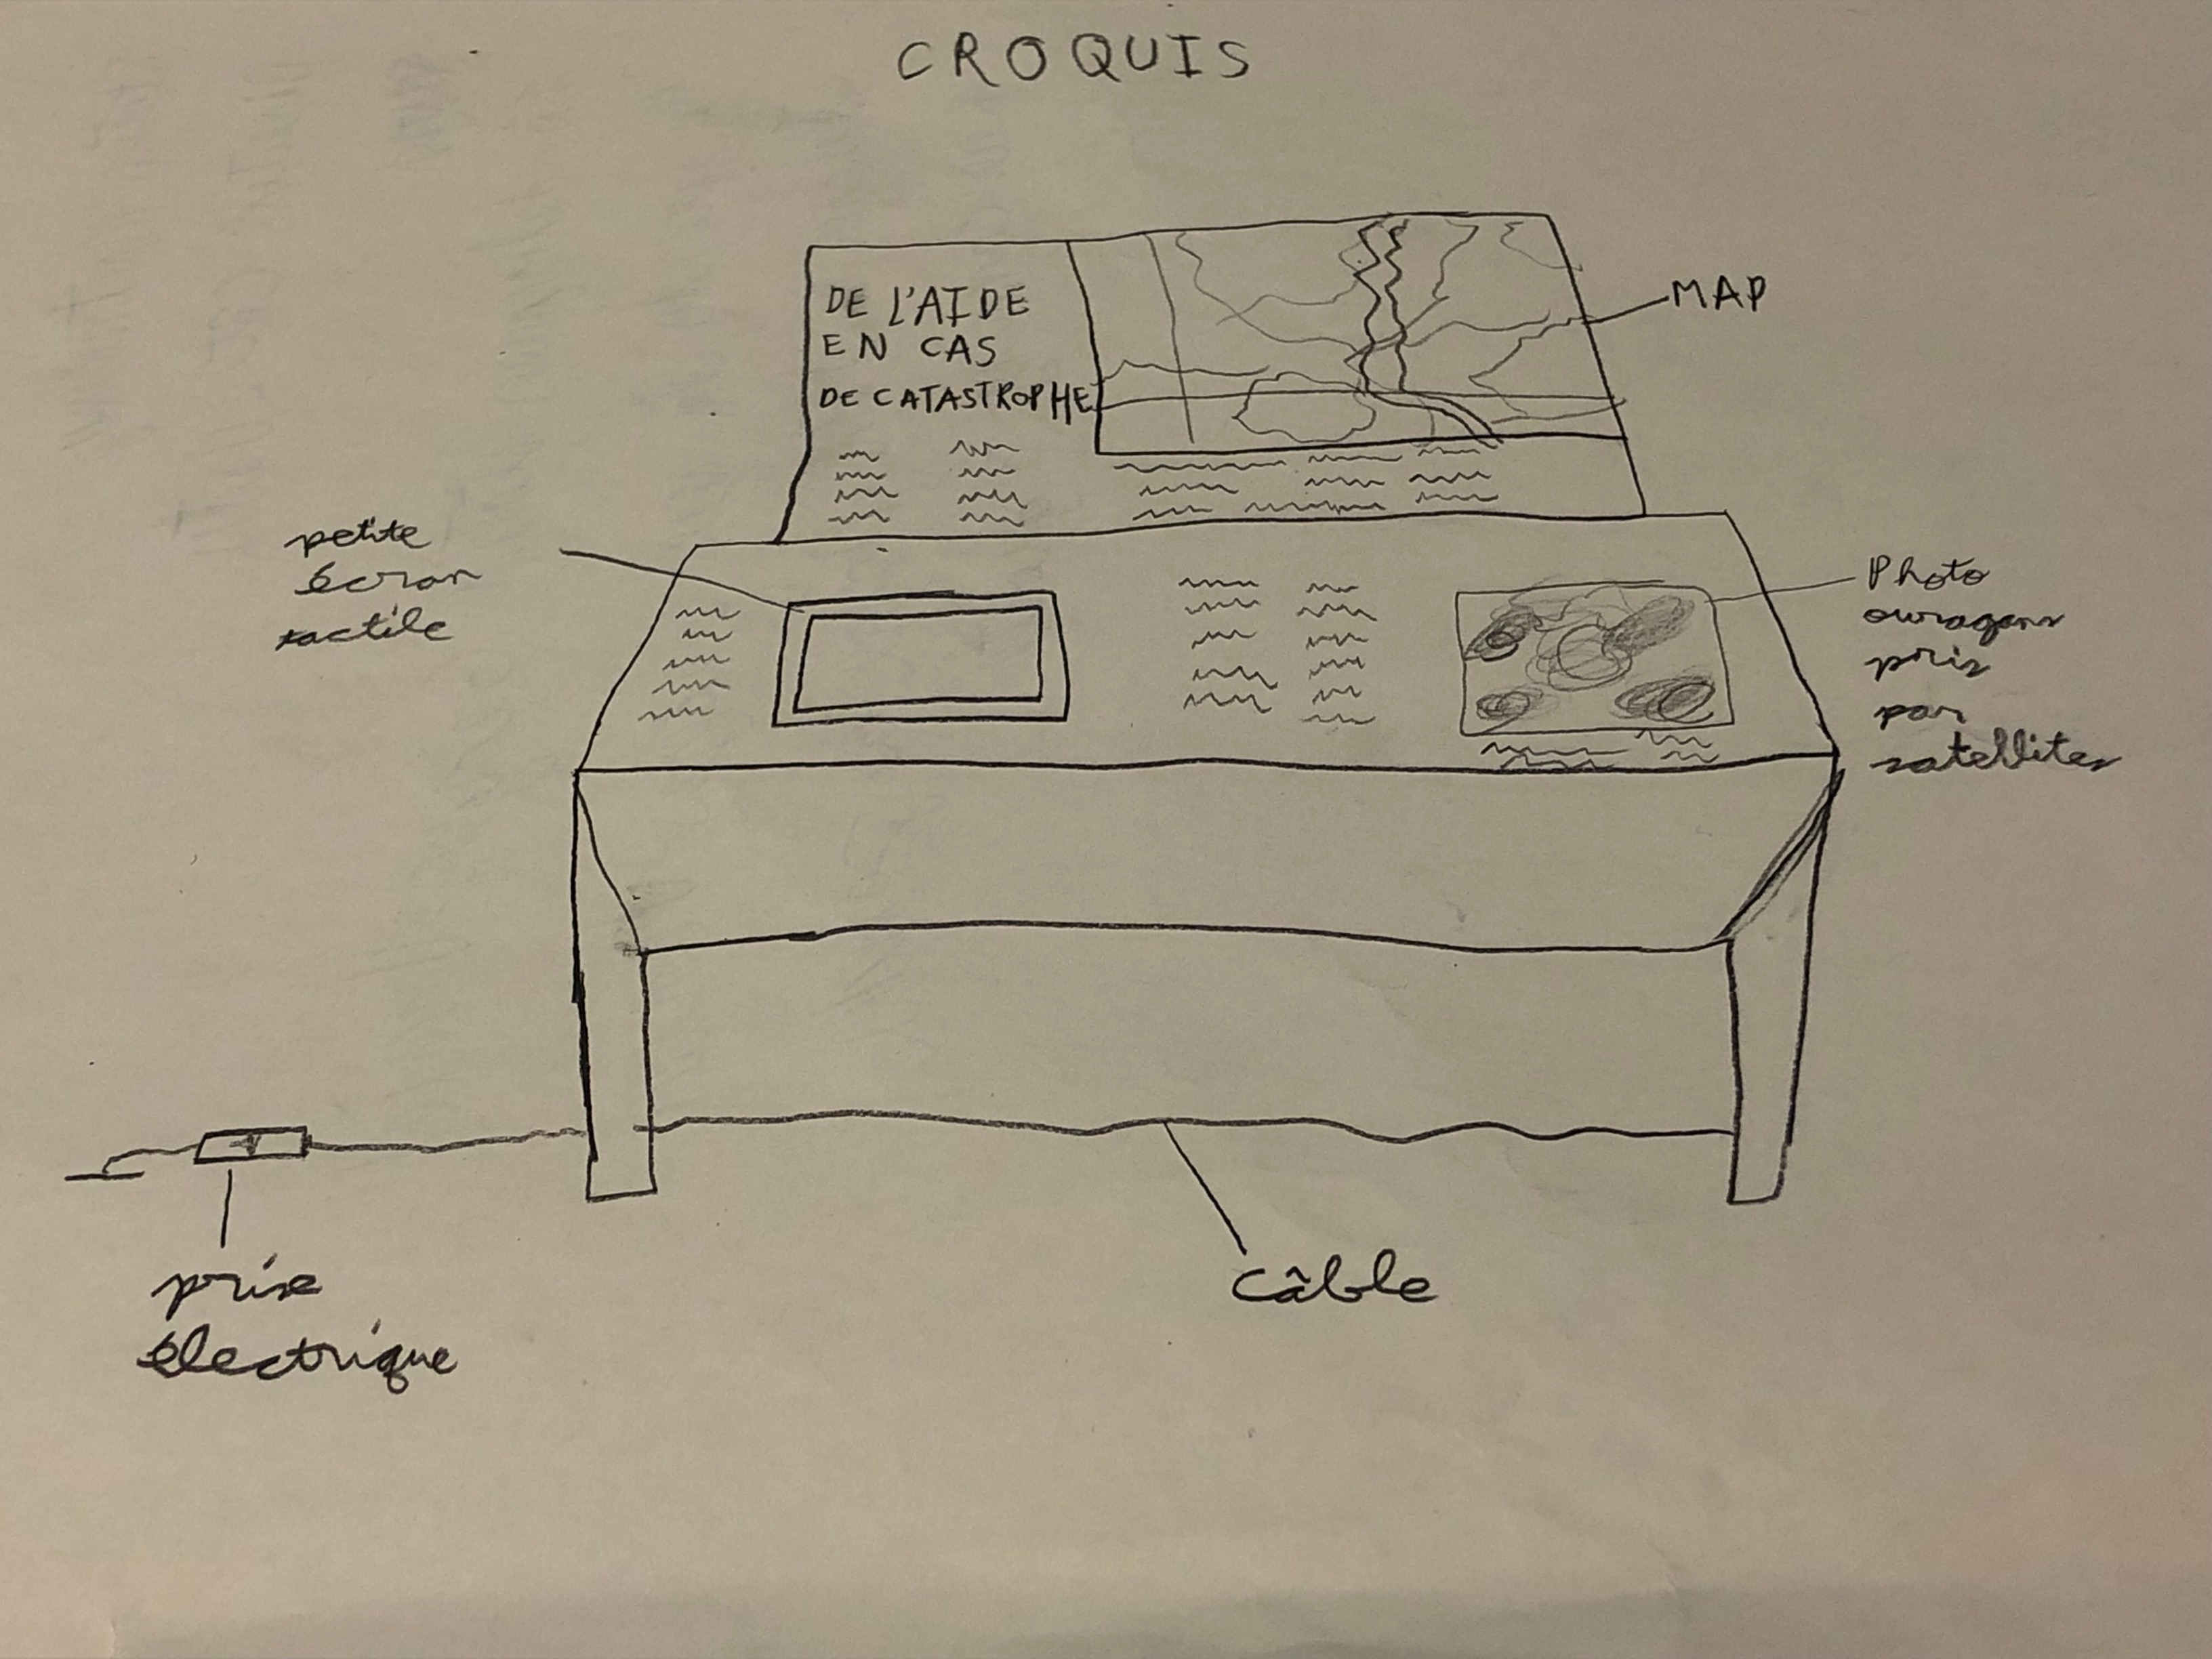 CROQUIS
DE L'AIDE
EN CAS
DE CATASTROPHE
MAP
petite
écran
tactile
Photo
ouragans
pris
par
satellites
prise
électrique
câble